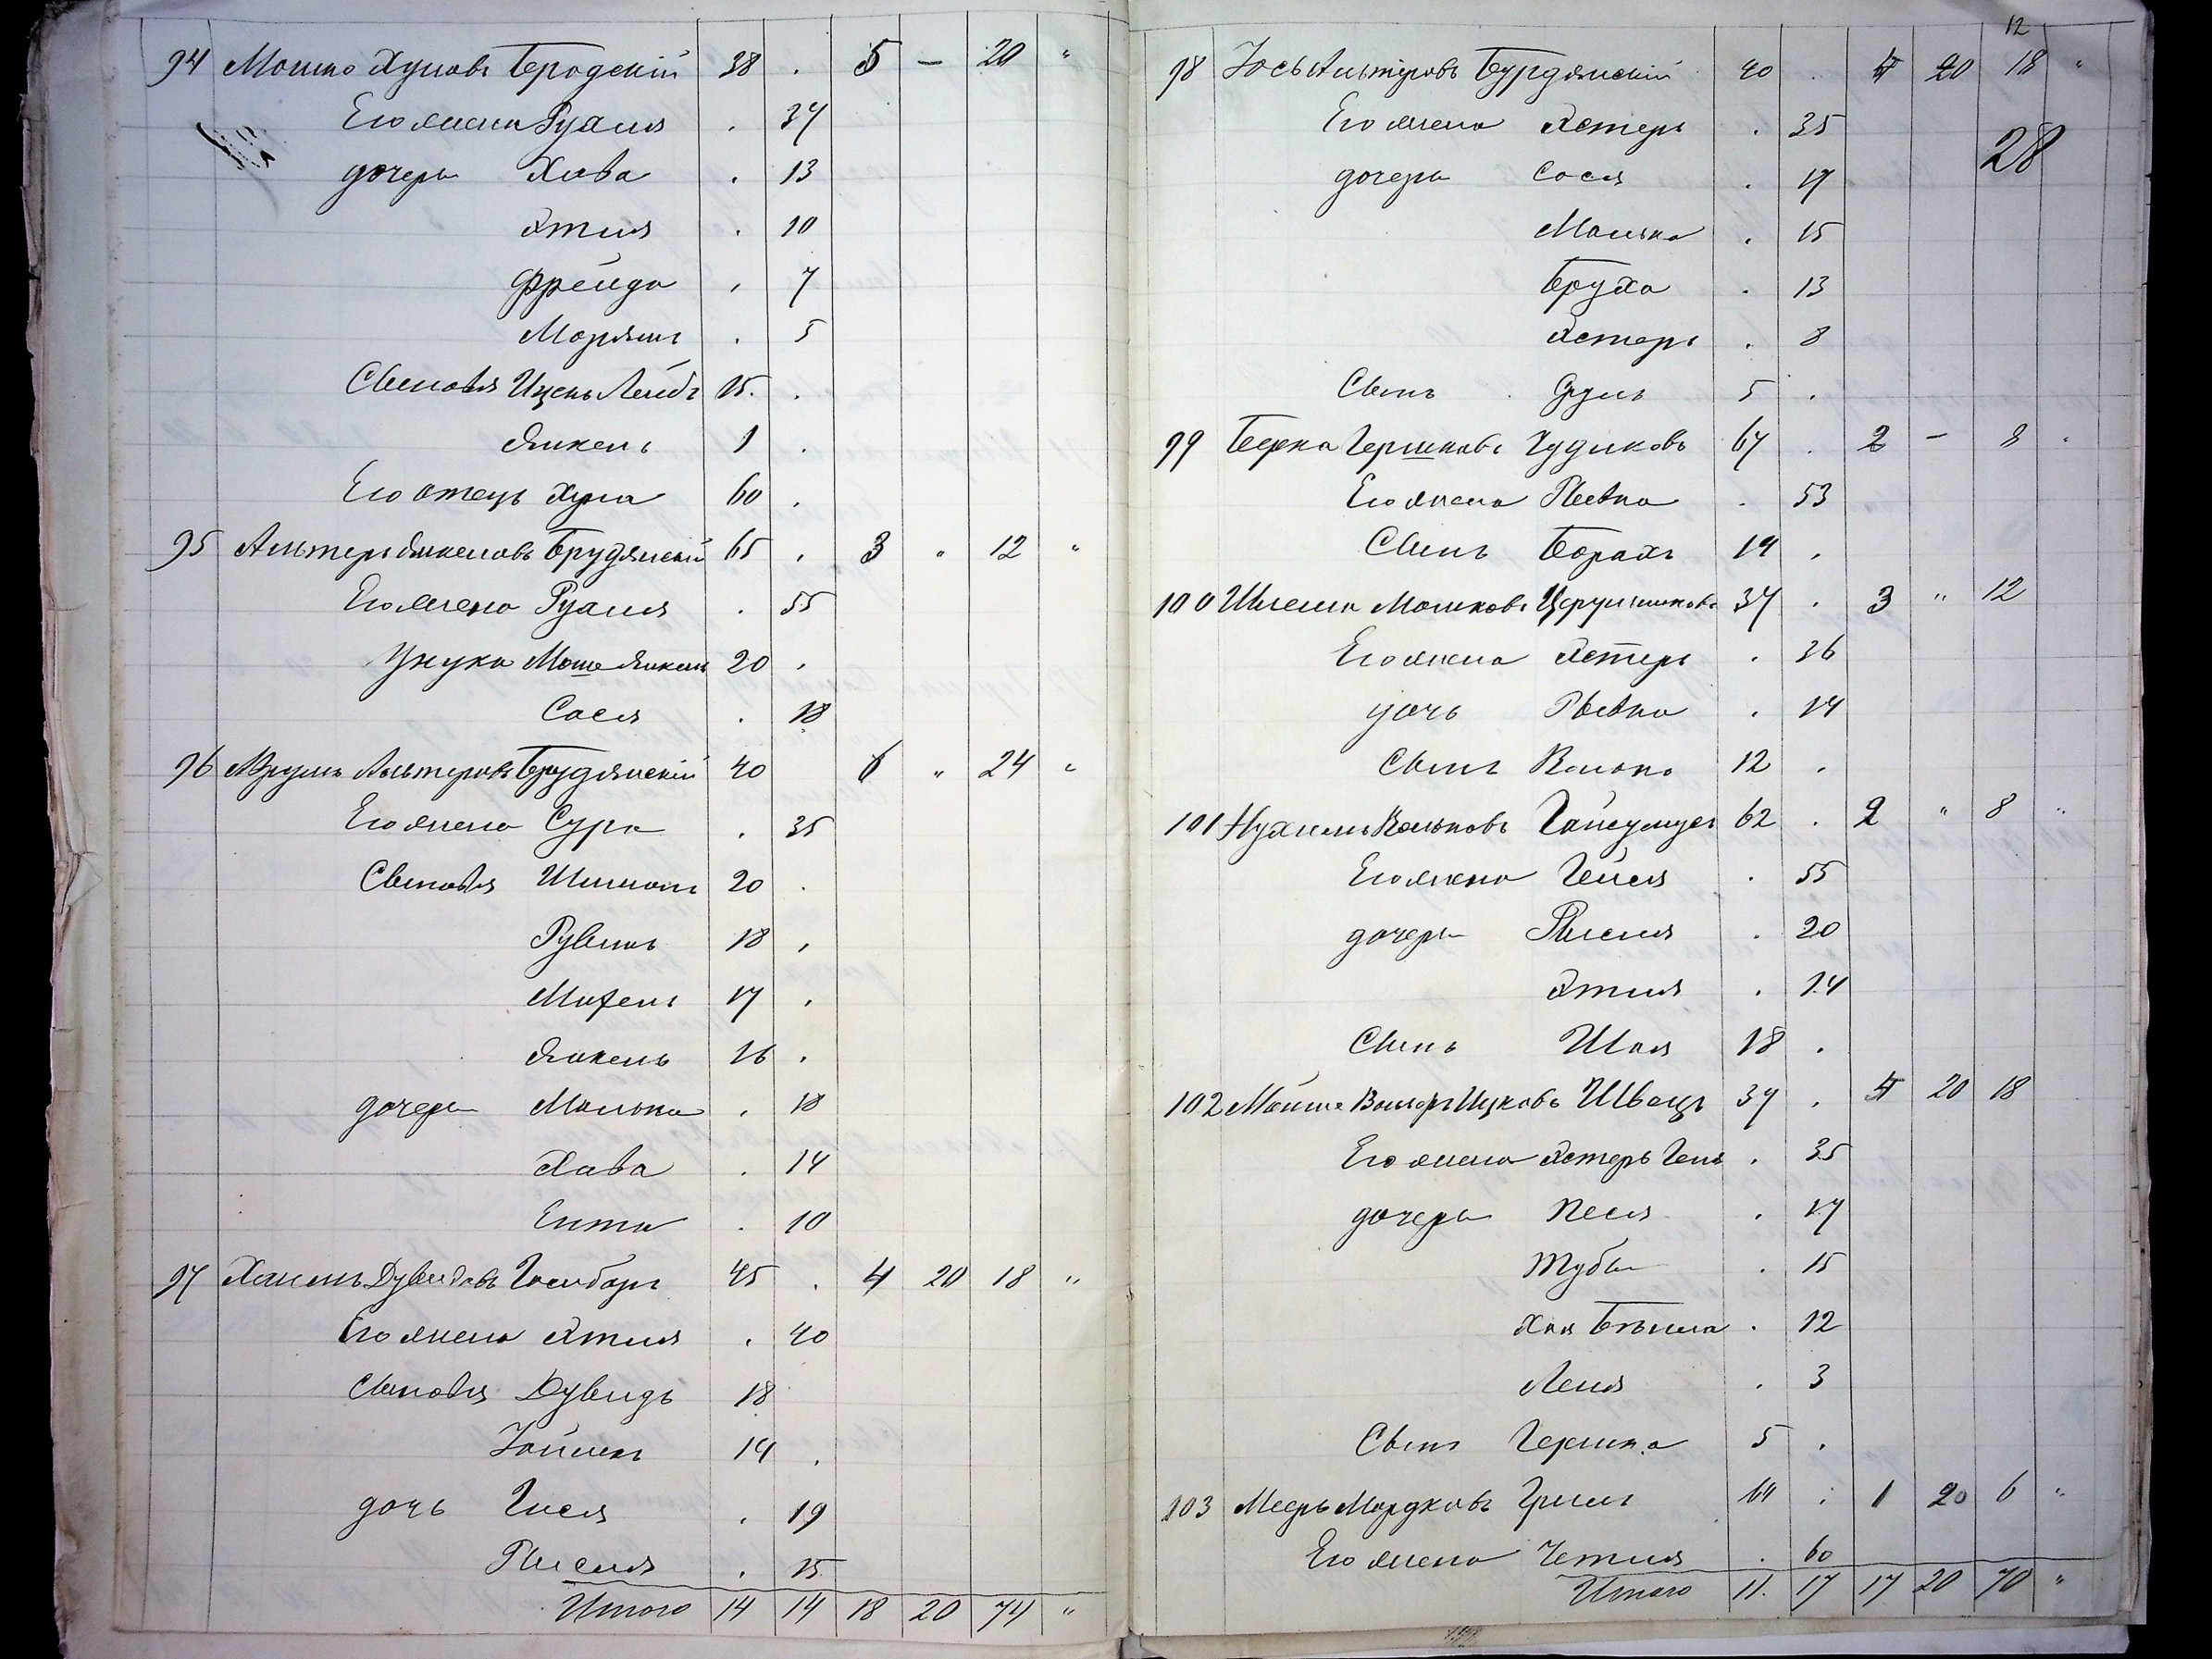 94 Мошко Хуновъ Бродскій 38 . 5 — 20 "
Его жена Рухля . 37
дочери Хава . 13
Этля . 10
Фрейда . 7
Марьямъ . 5
Сыновья Ицекъ Лейбъ 15 .
Янкель 1 .
Его отецъ Хуна 60 .
95 Альтеръ Янкелевъ Брудянскій 65 . 3 " 12 "
Его жена Рухля . 55
Унуки Моше Янкель 20 .
Сося . 18
96 Абрумъ Альтеровъ Брудянскій 40 6 " 24 "
Его жена Сура . 35
Сыновья Шимонъ 20 .
Рувинъ 18 .
Михель 17 .
Янкель 16 .
дочери Малька . 18
Хава . 14
Ента . 10
97 Хаимъ Дувидовъ 45 . 4 20 18 "
Его жена Этля . 40
Сыновья Дувидъ 18
14 .
дочь Гися . 19
Рися . 15
Итого 14 14 18 20 74 "
12
98 Іось Альтеровъ Бурдянскій 40 . 4 20 18 "
Его жена Эстеръ . 35
28
дочери Сося . 17
Малька . 15
Бруха . 13
Эстеръ . 8
Сынъ Сруль 5 .
99 Берка Гершковъ Чудиковъ 67 . 2 — 8 "
Его жена Рывка . 53
Сынъ Борахъ 19 .
100 Шлема Мошковъ 37 . 3 " 12
Его жена Эстеръ . 36
дочь Рывка . 14
Сынъ Волько 12 .
101 Нухимъ Вольковъ 62 . 2 " 8 "
Его жена Гейся . 55
дочери Рися . 20
Этля . 14
Сынъ Шая 18 .
102 Мойше Вольфъ Ицковъ Швецъ 37 . 4 20 18
Его жена Эстеръ Геня . 35
дочери Песя . 17
Туба . 15
Хая Бейла . 12
Лея . 3
Сынъ Гершка 5 .
103 Мееръ Мордковъ . 1 20 6 "
Его жена Четля . 60
Итого 11. 17 17 20 70 "